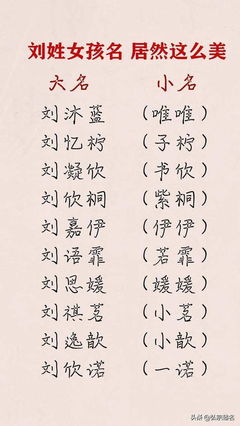 刘姓女孩名 居然这么美
大名 小名
刘沐蓝 (唯唯)
刘忆柠 (子柠)
刘凝欣 (书欣)
刘欣祠 (紫祠)
刘嘉伊 (伊伊)
刘语霏 (若霏)
刘恩媛 (媛媛)
刘祺茗 (小茗)
刘逸歆 (小歆)
刘欣诺 (一诺)
头条 @弘職起名